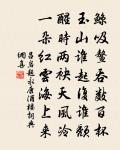 鯨吸鼇吞數百杯
玉山誰起復誰頹
醒時兩袂天風冷
一朵紅雲海上來
呂岩題永康酒樓詞典
網喜